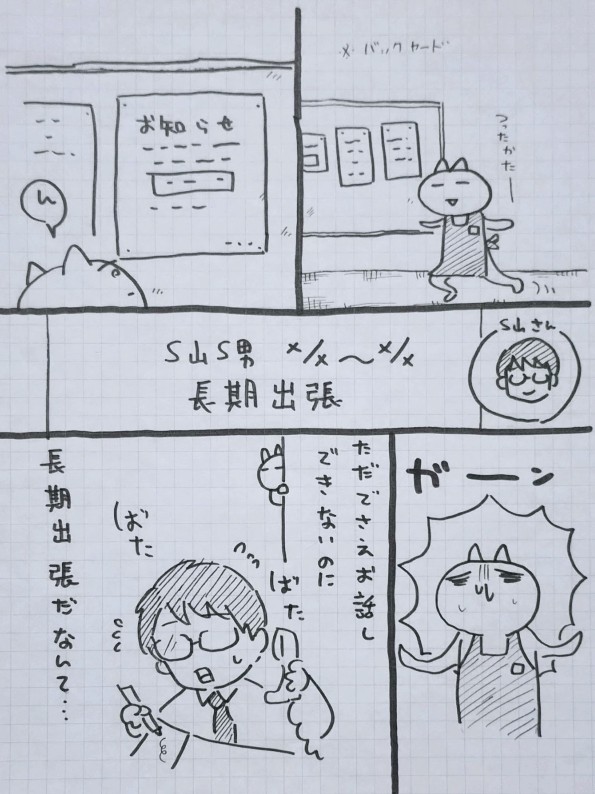 ※バックヤード
つったかたー
お知らせ
ん
S山S男 ×/×〜×/×
長期出張
S山さん
ガーン
ただでさえお話し
できないのに
ばた
ばた
長期出張だなんて…